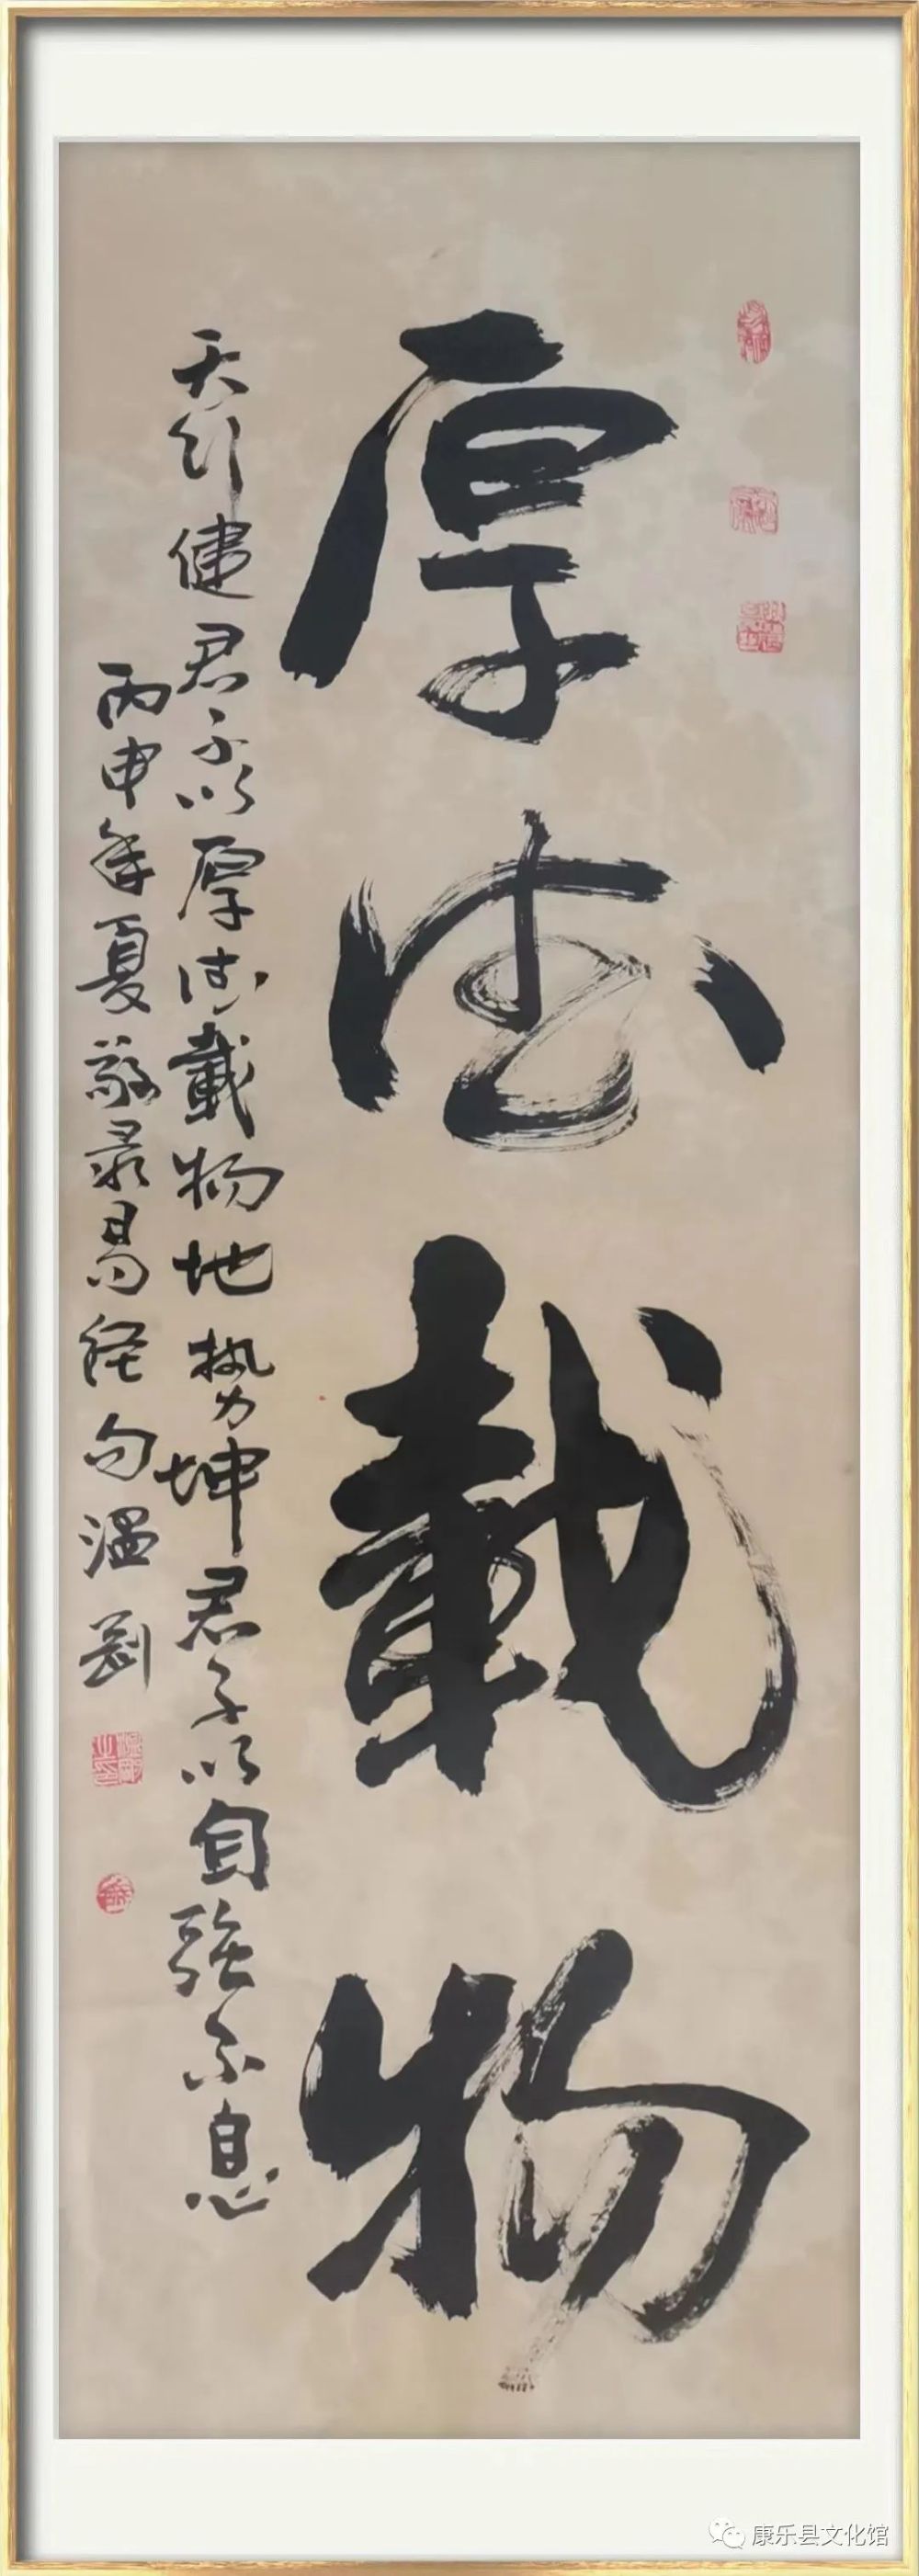 厚德载物
天行健君子以厚德载物地势坤君子以自强不息
丙申年夏敬录易经句温刚
康乐县文化馆